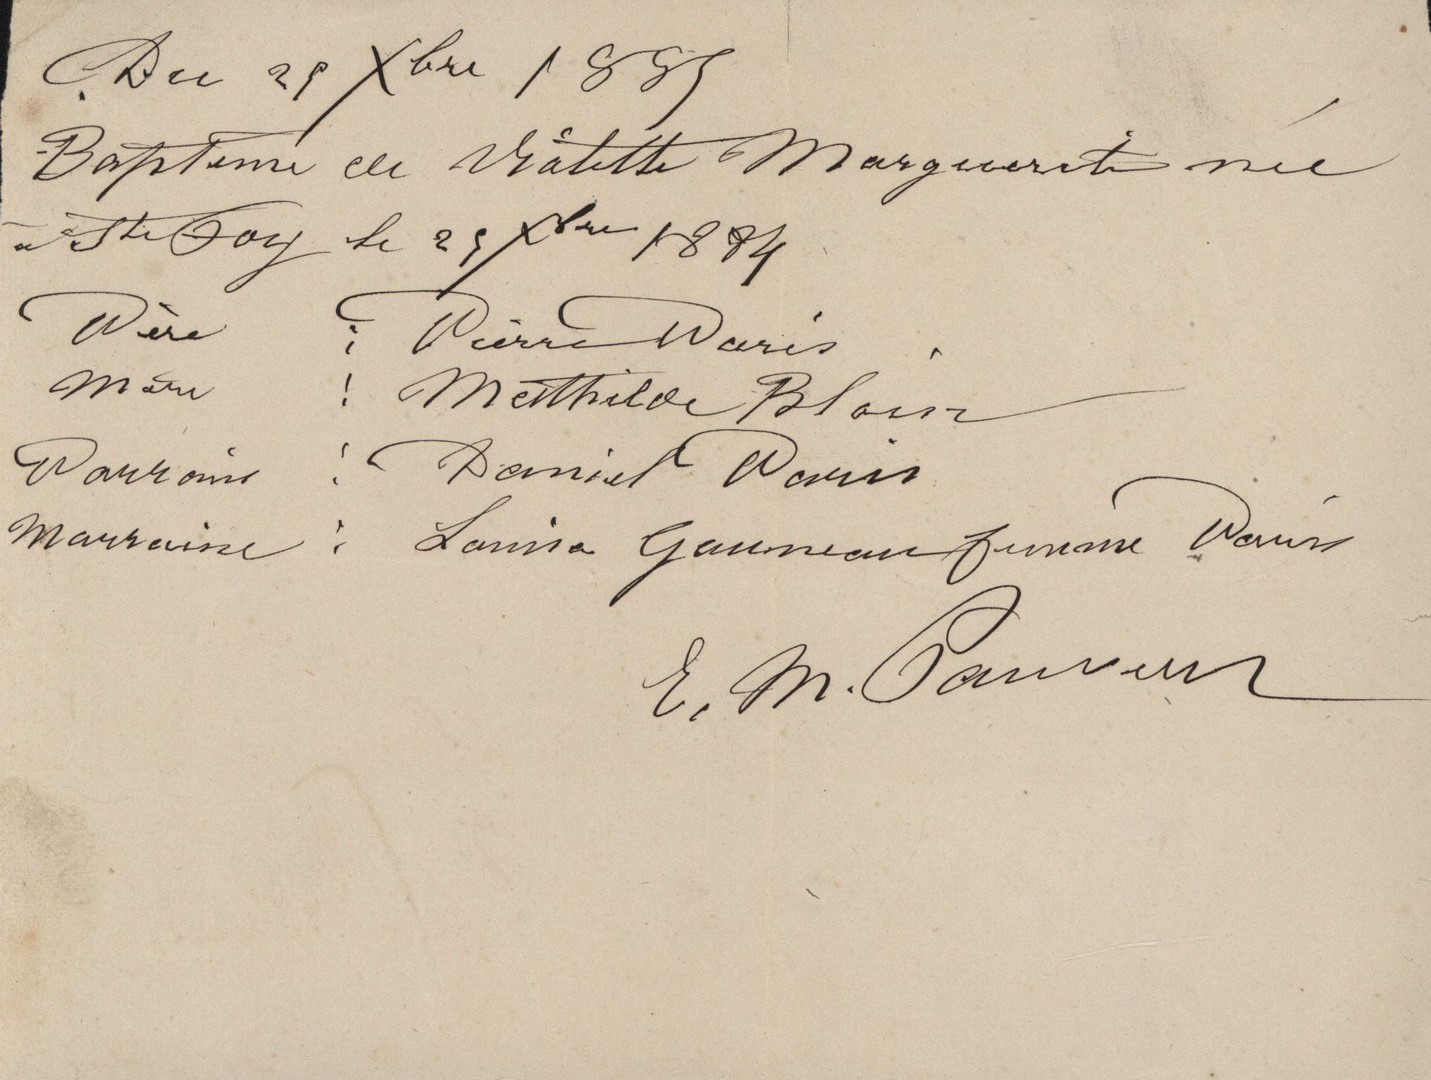 Du 25 Xbre 1885
Baptême de Violette Marguerite née
à Ste Foy le 25 Xbre 1884
Père : Pierre Paris
Mère : Mathilde Blois
Parrain : Daniel Paris
Marraine : Louisa Gauneau femme Paris
E. M.